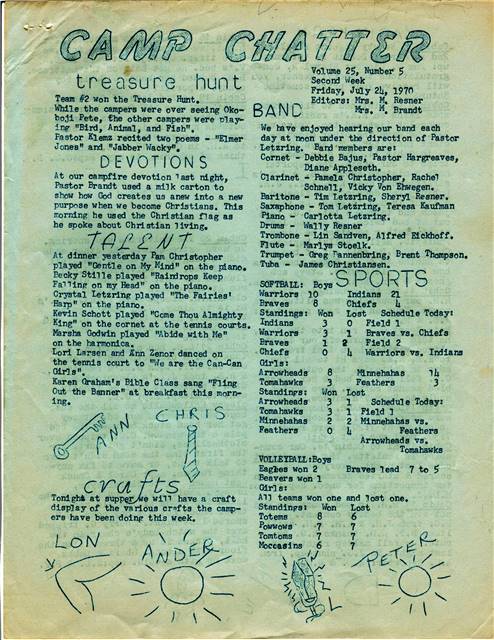 CAMP CHATTER
treasure hunt
Team #2 won the Treasure Hunt.
While the campers were over seeing Oko-
boji Pete, the other campers were play-
ing "Bird, Animal, and Fish".
Pastor Klemz recited two poems - "Elmer
Jones" and "Jabber Wacky".
DEVOTIONS
At our campfire devotion last night,
Pastor Brandt used a milk carton to
show how God creates us anew into a new
purpose when we become Christians. This
morning he used the Christian flag as
he spoke about Christian living.
TALENT
At dinner yesterday Pam Christopher
played "Gentle on My Kind" on the piano.
Becky Stille played "Raindrops Keep
Falling on my Head" on the piano.
Crystal Letzring played "The Fairies'
Harp" on the piano.
Kevin Schott played "Come Thou Almighty
King" on the cornet at the tennis courts.
Marsha Godwin played "Abide with Me"
on the harmonica.
Lori Larsen and Ann Zenor danced on
the tennis court to "We are the Can-Can
Girls".
Karen Graham's Bible Class sang "Fling
Out the Banner" at breakfast this morn-
ing.
ANN
CHRIS
crafts
Tonight at supper we will have a craft
display of the various crafts the camp-
ers have been doing this week.
LON
ANDER
Volume 25, Number 5
Second Week
Friday, July 24, 1970
Editors: Mrs. M. Resner
Mrs. M. Brandt
BAND
We have enjoyed hearing our band each
day at noon under the direction of Pastor
Letzring. Band members are:
Cornet - Debbie Bajus, Pastor Hargreaves,
Diane Appleseth.
Clarinet - Pamela Christopher, Rachel
Schnell, Vicky Von Ehwegen.
Baritone - Tim Letzring, Sheryl Resner.
Saxaphone - Tom Letzring, Teresa Kaufman
Piano - Carlotta Letzring.
Drums - Wally Resner
Trombone - Lin Sandven, Alfred Eickhoff.
Flute - Marlys Stoelk.
Trumpet - Greg Dannenbring, Brent Thompson.
Tuba - James Christiansen.
SPORTS
SOFTBALL: Boys
Warriors 10 Indians 21
Braves 8 Chiefs 4
Standings: Won Lost Schedule Today:
Indians 3 0 Field 1
Warriors 3 1 Braves vs. Chiefs
Braves 1 2 Field 2
Chiefs 0 4 Warriors vs. Indians
Girls:
Arrowheads 8 Minnehahas 14
Tomahawks 3 Feathers 3
Standings: Won Lost
Arrowheads 3 1 Schedule Today:
Tomahawks 3 1 Field 1
Minnehahas 2 2 Minnehahas vs.
Feathers 0 4 Feathers
Arrowheads vs.
Tomahawks
VOLLEYBALL: Boys
Eagles won 2 Braves lead 7 to 5
Beavers won 1
Girls:
All teams won one and lost one.
Standings: Won Lost
Totems 8 6
Powwows 7 7
Tomtoms 7 7
Moccasins 6 7
PETER